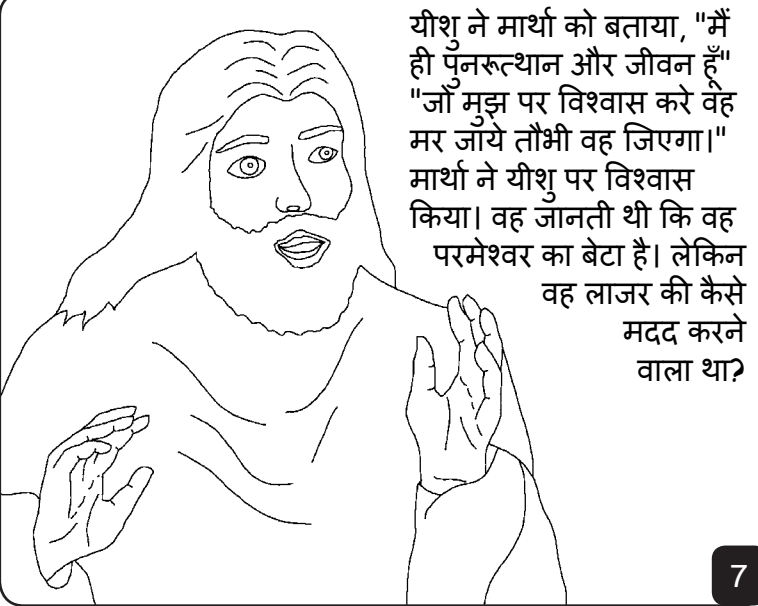 यीशु ने मार्था को बताया, "मैं
ही पुनरूत्थान और जीवन हूँ"
"जो मुझ पर विश्वास करे वह
मर जाये तौभी वह जिएगा।"
मार्था ने यीशु पर विश्वास
किया। वह जानती थी कि वह
परमेश्वर का बेटा है। लेकिन
वह लाजर की कैसे
मदद करने
वाला था?
7